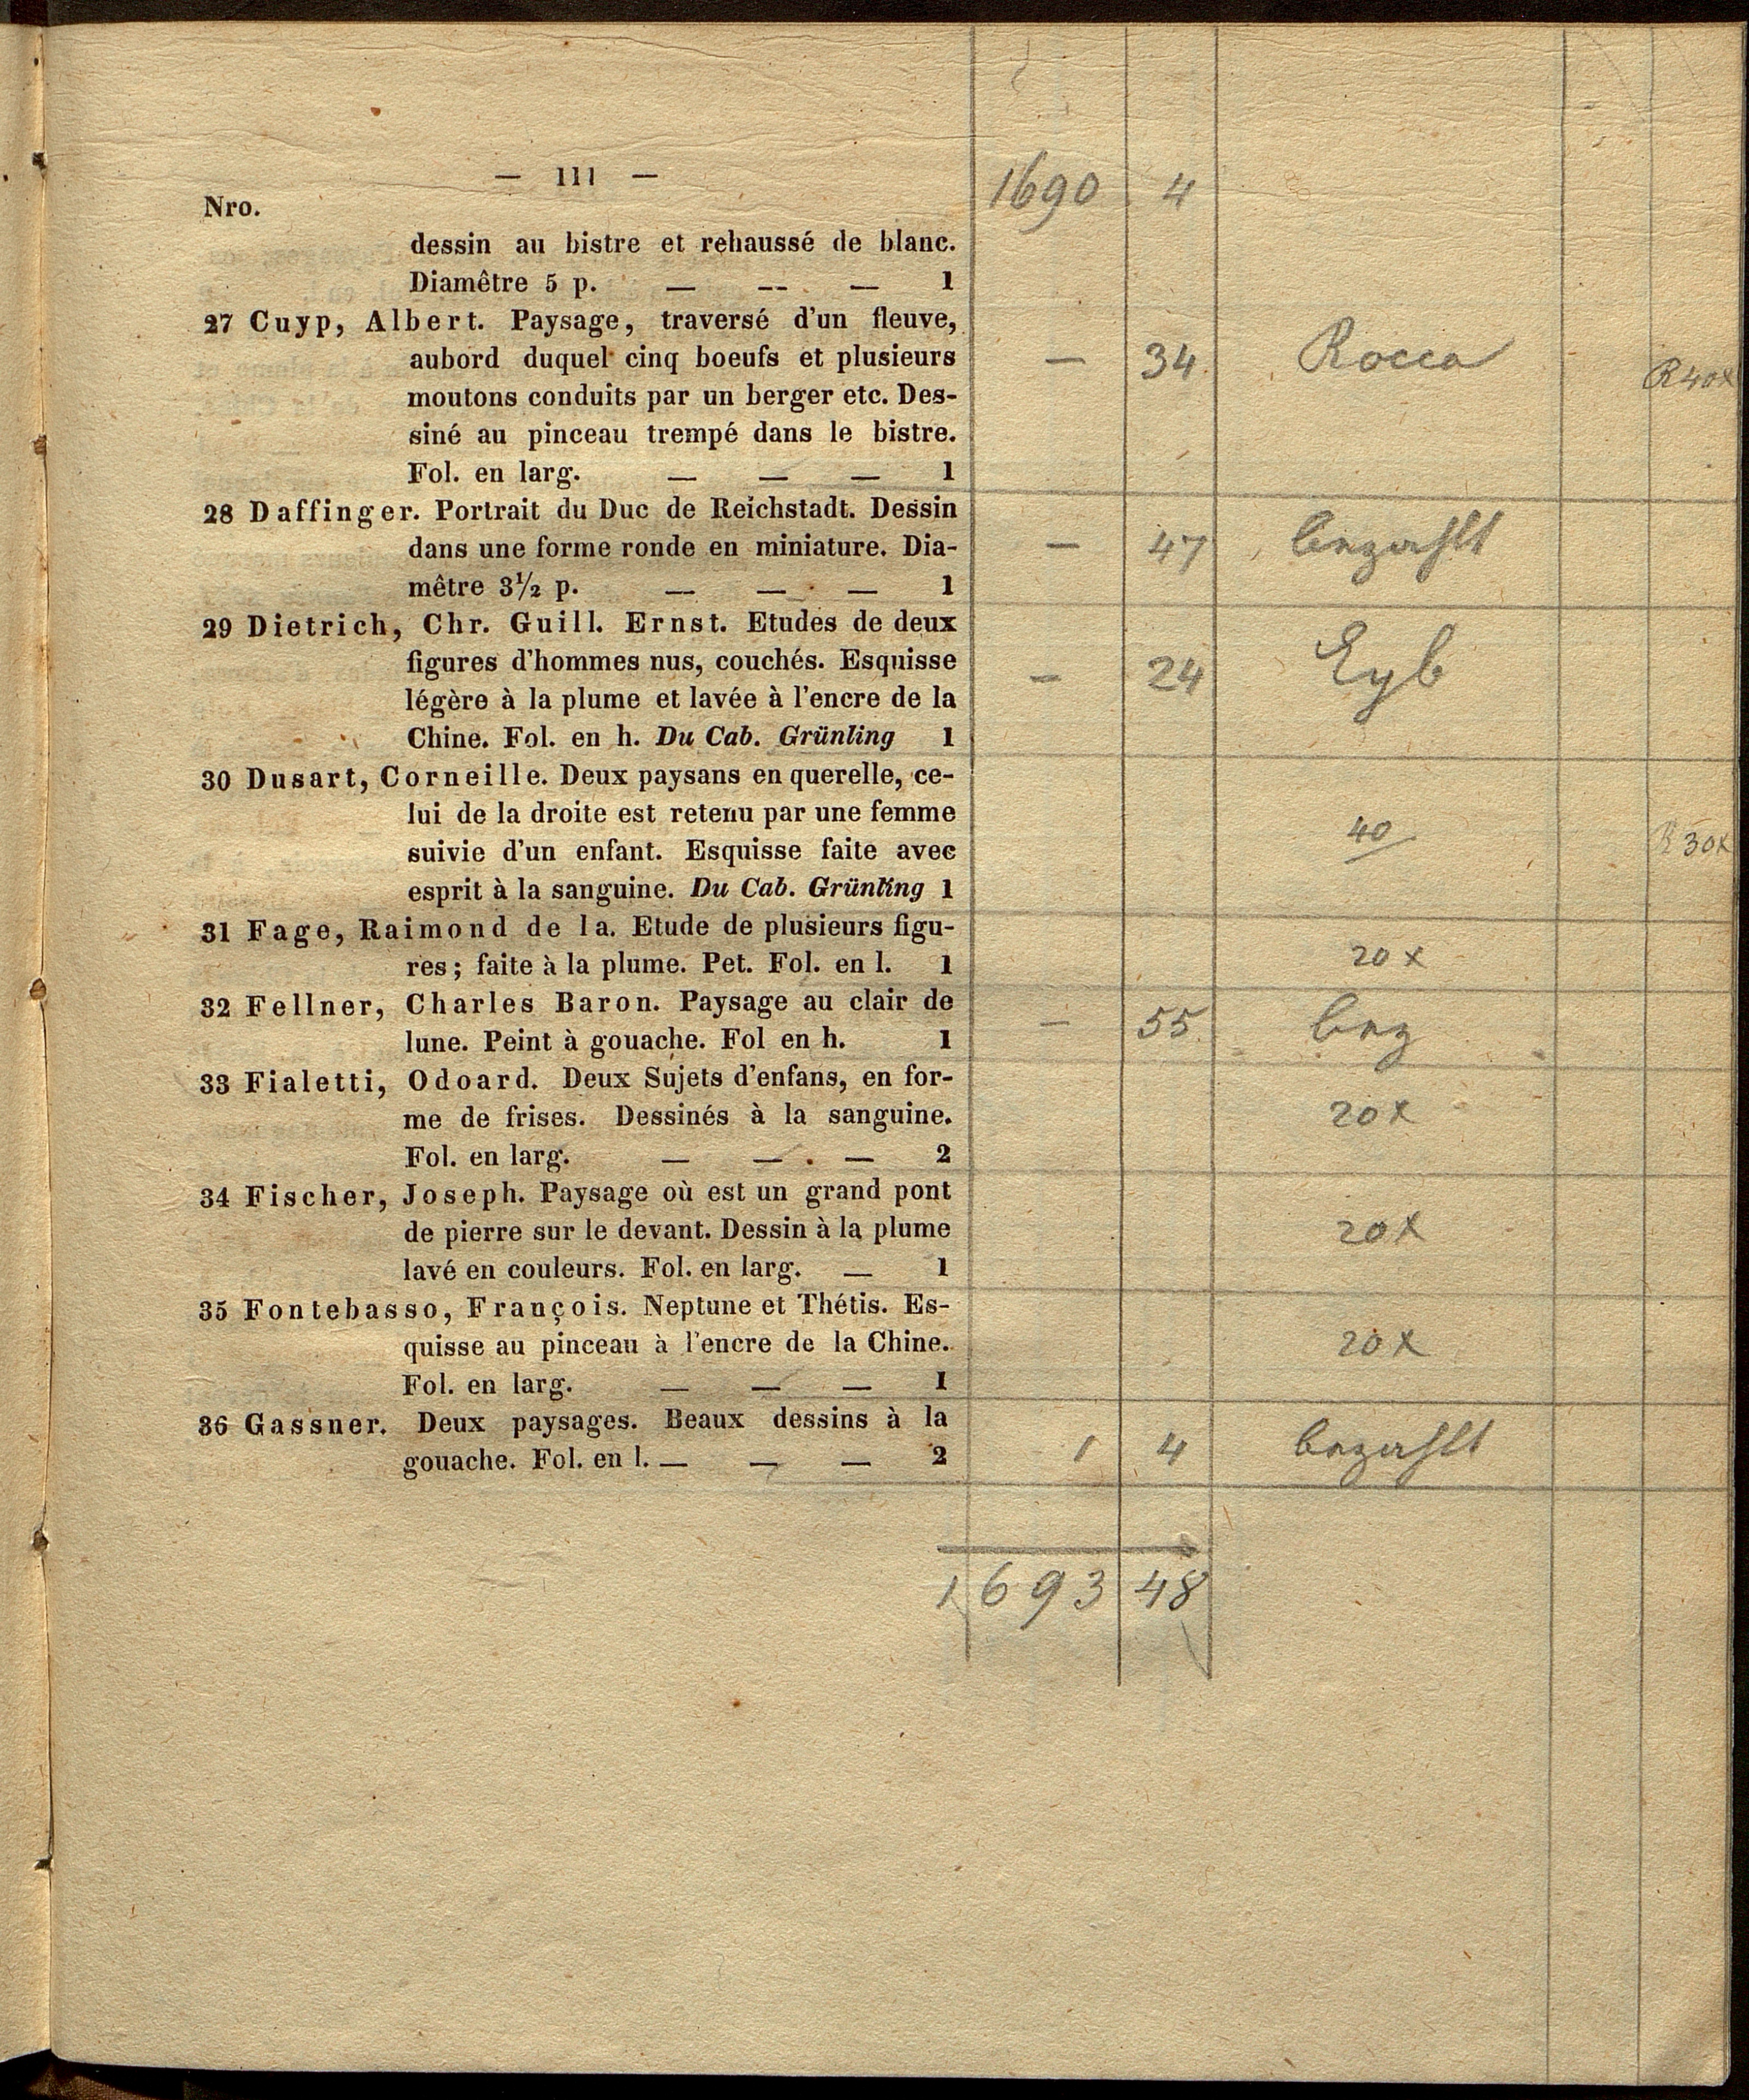 — 111 —
1690 4
Nro.
dessin au bistre et rehaussé de blanc.
Diamêtre 5 p. — — — 1
27 Cuyp, Albert. Paysage, traversé d'un fleuve,
aubord duquel cinq boeufs et plusieurs
moutons conduits par un berger etc. Des-
siné au pinceau trempé dans le bistre.
Fol. en larg. — — — 1
— 34 Rocca R 40x
28 Daffinger. Portrait du Duc de Reichstadt. Dessin
dans une forme ronde en miniature. Dia-
mêtre 3½ p. — — — 1
— 47 bezahlt
29 Dietrich, Chr. Guill. Ernst. Etudes de deux
figures d'hommes nus, couchés. Esquisse
légère à la plume et lavée à l'encre de la
Chine. Fol. en h. Du Cab. Grünling 1
— 24 Eyb
30 Dusart, Corneille. Deux paysans en querelle, ce-
lui de la droite est retenu par une femme
suivie d'un enfant. Esquisse faite avec
esprit à la sanguine. Du Cab. Grünling 1
40 R 30x
31 Fage, Raimond de la. Etude de plusieurs figu-
res; faite à la plume. Pet. Fol. en l. 1
20 x
32 Fellner, Charles Baron. Paysage au clair de
lune. Peint à gouache. Fol en h. 1
— 55 bez
33 Fialetti, Odoard. Deux Sujets d'enfans, en for-
me de frises. Dessinés à la sanguine.
Fol. en larg. — — — 2
20 x
34 Fischer, Joseph. Paysage où est un grand pont
de pierre sur le devant. Dessin à la plume
lavé en couleurs. Fol. en larg. — 1
20 x
35 Fontebasso, François. Neptune et Thétis. Es-
quisse au pinceau à l'encre de la Chine.
Fol. en larg. — — — 1
20 x
36 Gassner. Deux paysages. Beaux dessins à la
gouache. Fol. en l. — — — 2
1 4 bezahlt
1693 48